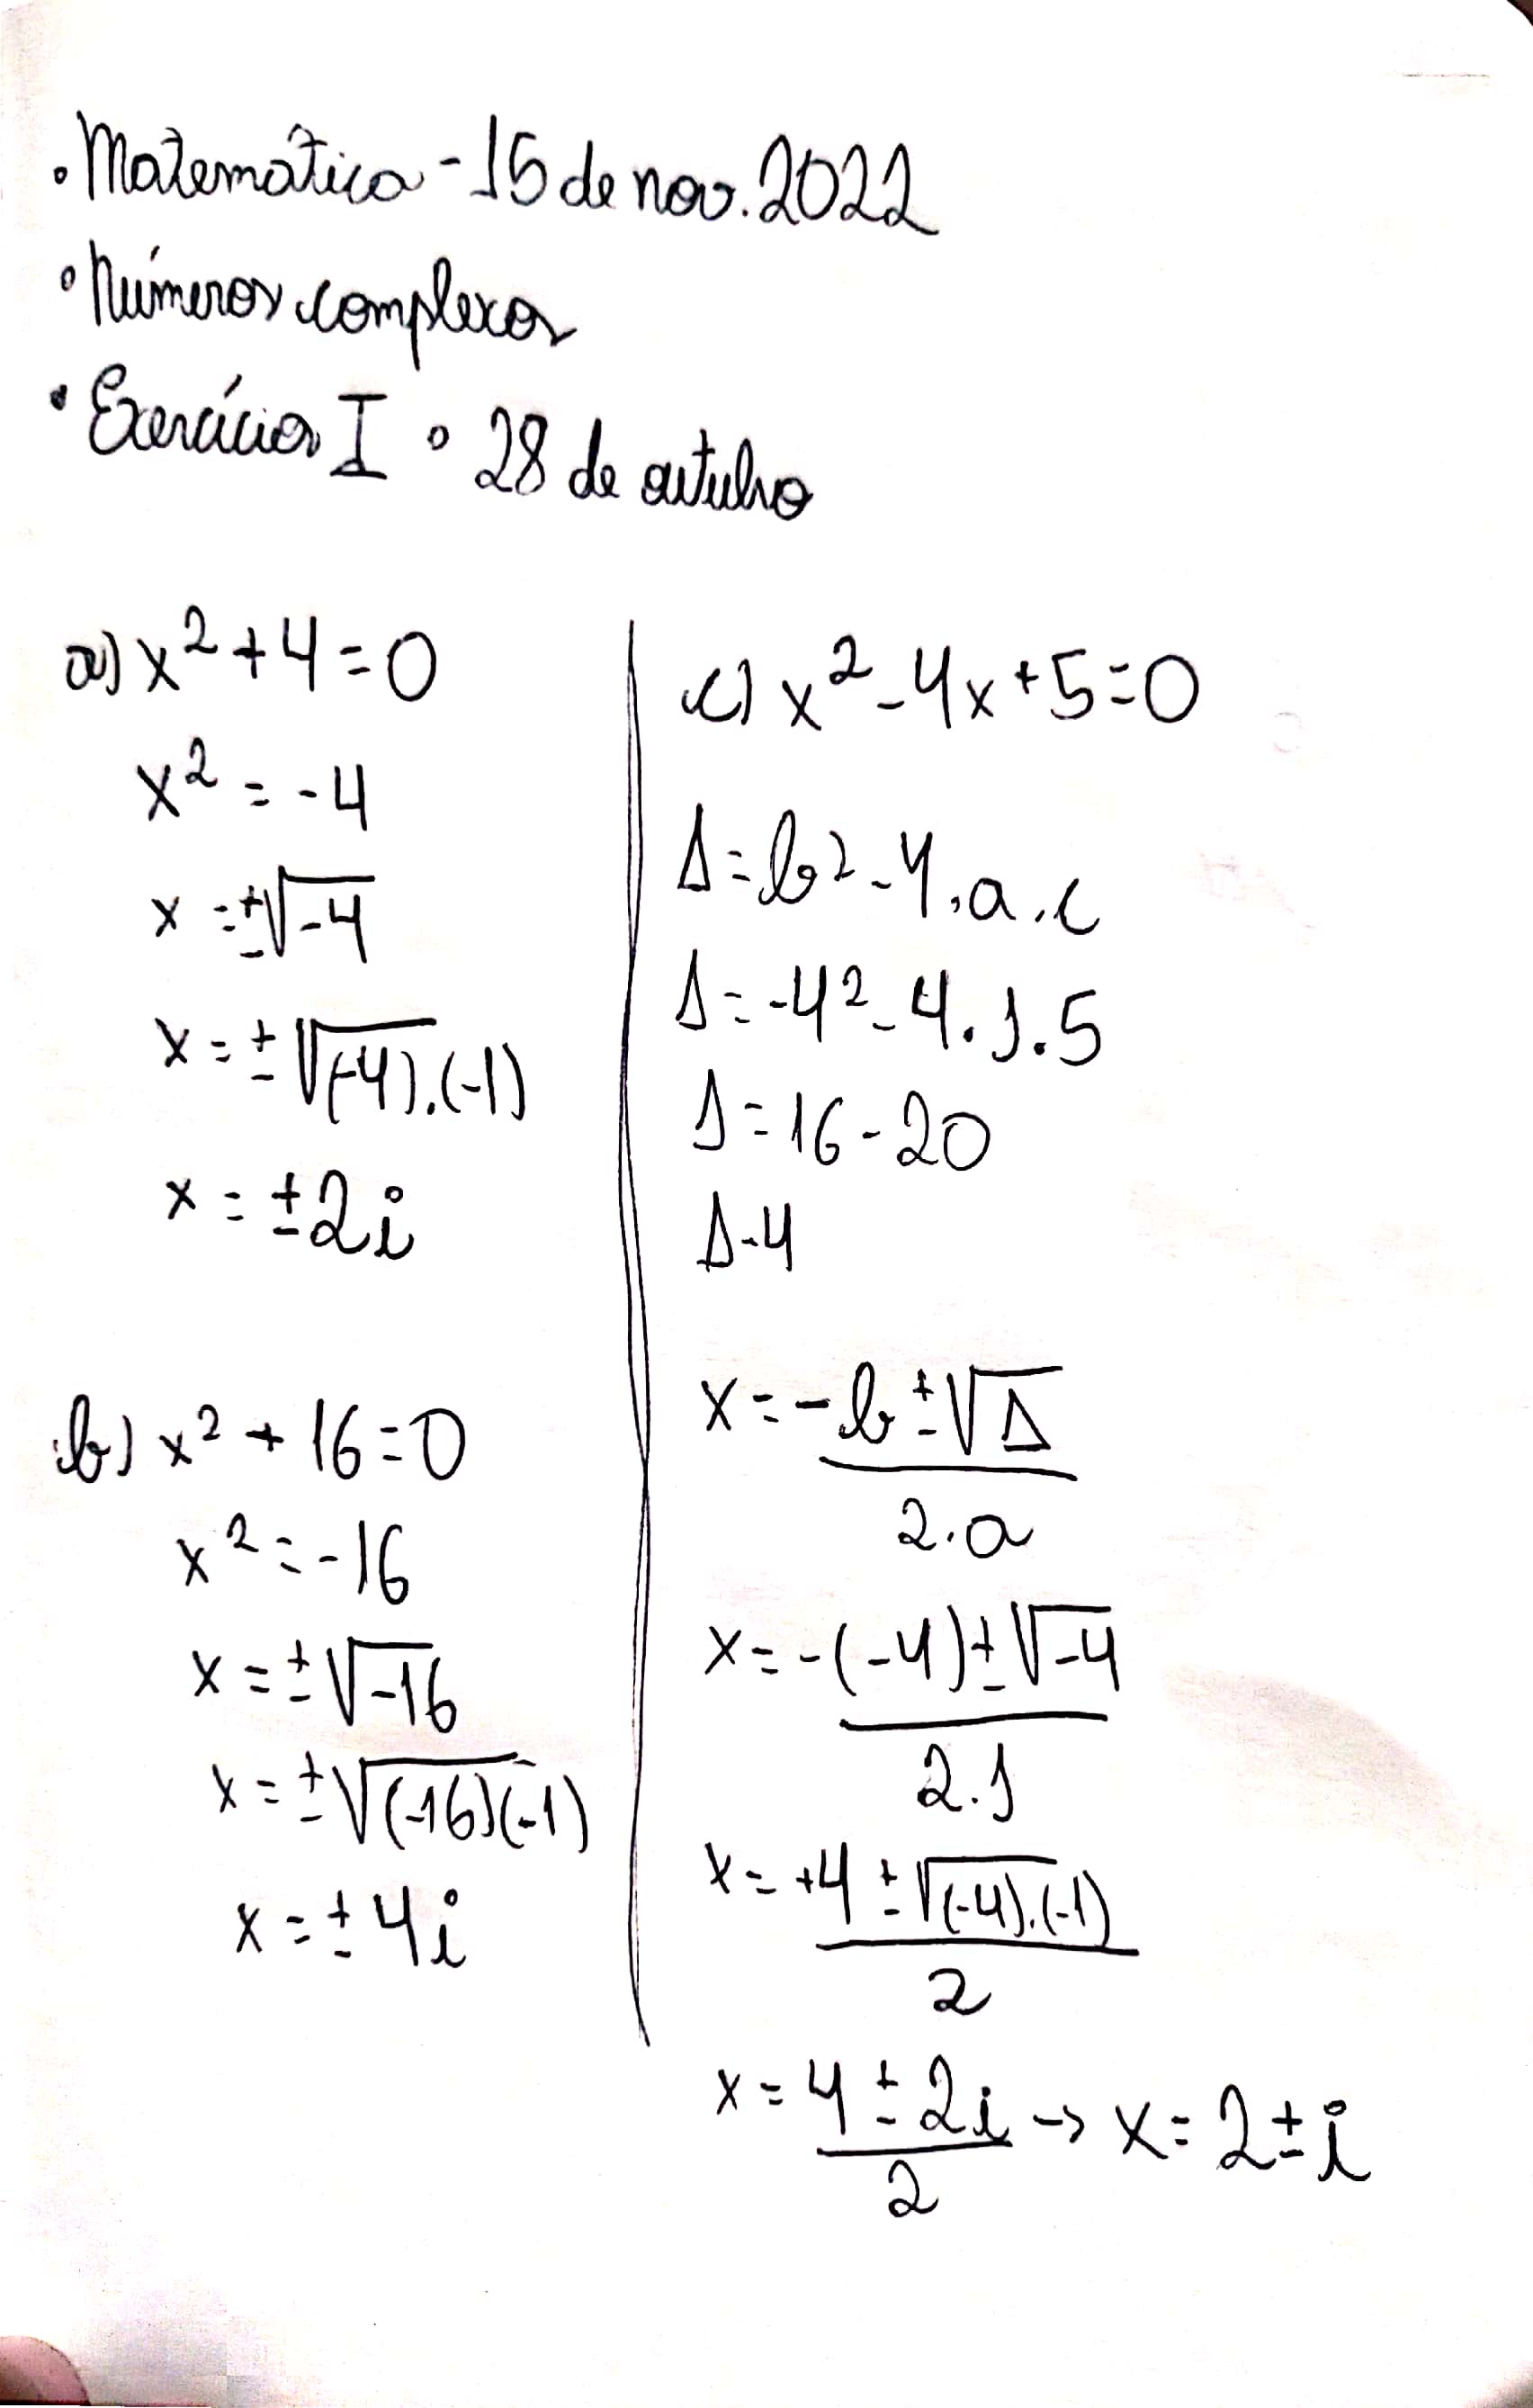 • Matemática - 15 de nov. 2022
• Números complexos
• Exercícios I • 28 de outubro
a) x² + 4 = 0
x² = -4
x = ±√-4
x = ±√(-4).(-1)
x = ±2i
b) x² + 16 = 0
x² = -16
x = ±√-16
x = ±√(-16)(-1)
x = ±4i
c) x² - 4x + 5 = 0
Δ = b² - 4.a.c
Δ = -4² - 4.1.5
Δ = 16 - 20
Δ - 4
x = -b ± √Δ
2.a
x = -(-4) ± √-4
2.1
x = +4 ± √(-4).(-1)
2
x = 4 ± 2i → x = 2 ± i
2